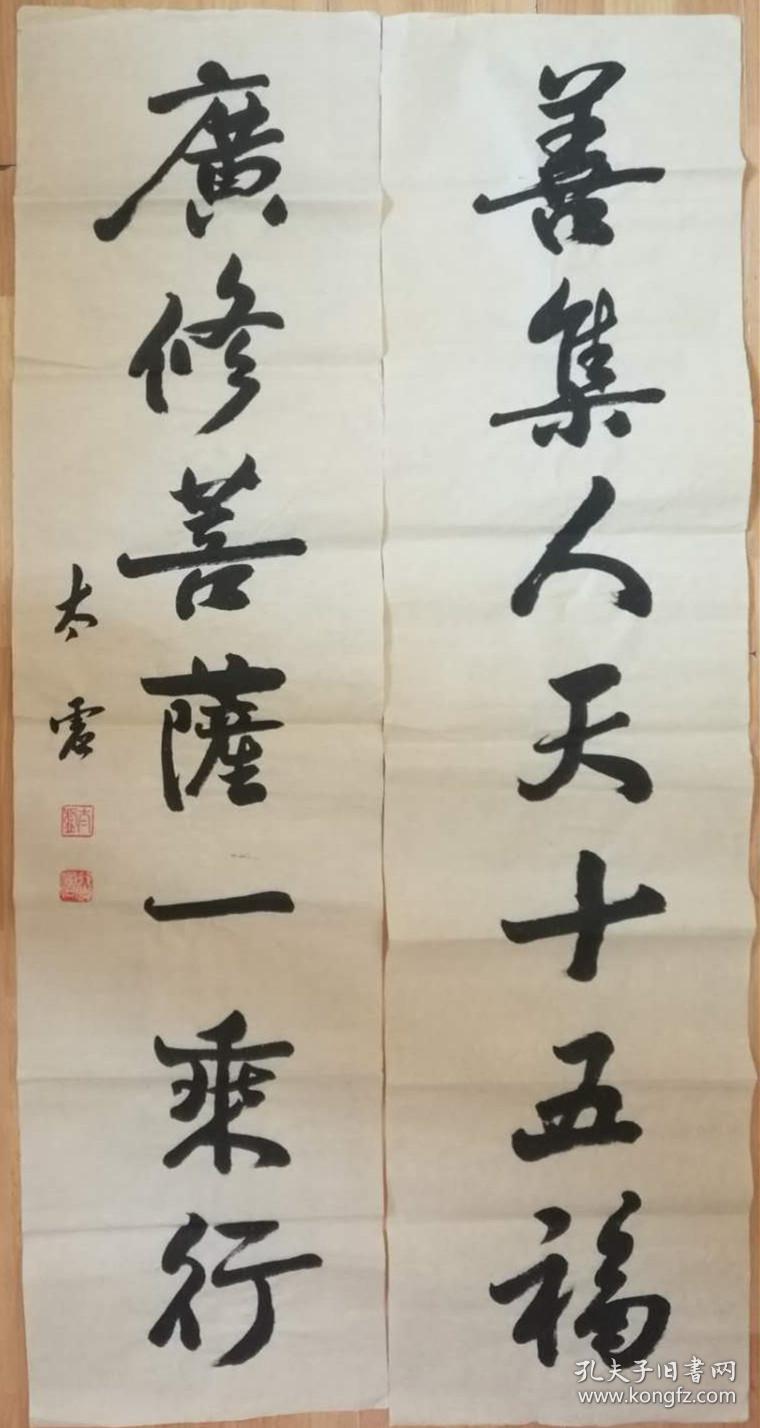 善集人天十五福
廣修菩薩一乘行
太虛
孔夫子旧书网
www.kongfz.com